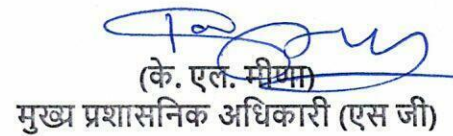 (के. एल. मीणा)
मुख्य प्रशासनिक अधिकारी (एस जी)